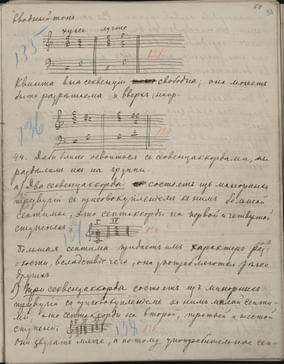 вводный тонъ.
хуже лучше
135
Квинта въ секвенціи свободна; она можетъ
быть разрѣшаема и вверхъ; напр.
136
44. Дабы ближе освоиться съ секвенцаккордами, мы
раздѣлимъ ихъ на группы.
a) Два секвенцаккорда состоятъ изъ мажорныхъ
трезвучій съ присовокупленіемъ къ нимъ большой
септимы; это септаккорды на первой и четвертой
ступеняхъ:
I IV
Большая септима придаетъ имъ характеръ
кости, вслѣдствіе чего, они употребляются рѣже
другихъ.
b) Три секвенцаккорда состоятъ изъ минорныхъ
трезвучій съ присовокупленіемъ къ нимъ малой септи-
мы: это септаккорды на второй, третьей и шестой
ступеняхъ:
138
Они звучатъ мягче, а потому употребительнѣе сеп-